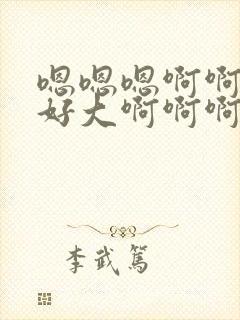 嗯嗯嗯啊啊
好大啊啊啊
李武篤